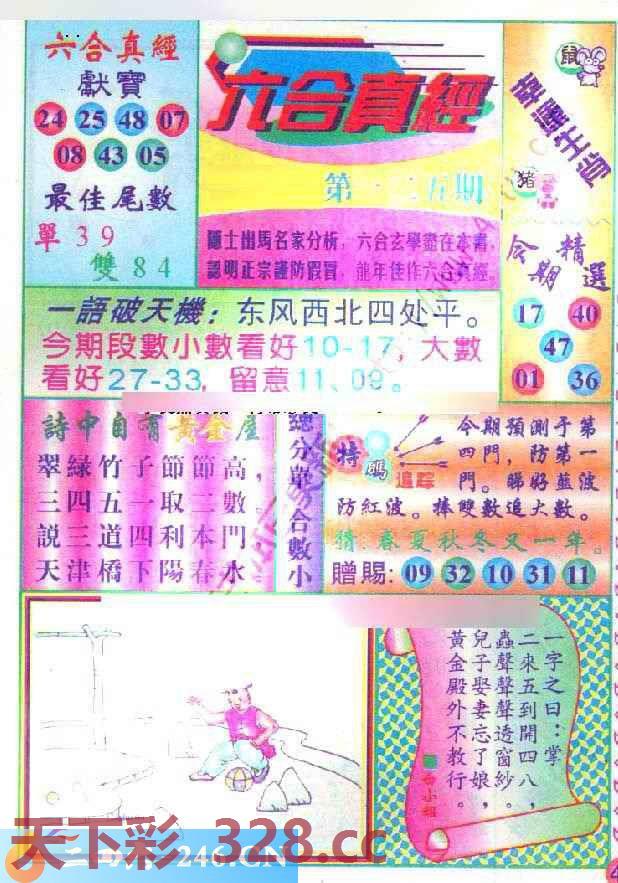 六合真經
獻寶
24 25 48 07
08 43 05
最佳尾數
單 3 9
雙 8 4
六合真經
第一二五期
隱士出馬名家分析，六合玄學盡在本書，
認明正宗謹防假冒，龍年佳作六合真經。
鼠
幸運生肖
猪
今期精選
17 40
47
01 36
一語破天機：东风西北四处平。
今期段數小數看好10-17，大數
看好27-33，留意11、09。
詩中自有黃金屋
翠綠竹子節節高，
三四五一取二數。
説三道四利本門
天津橋下陽春水
總分單合數小
特碼追踪
今期預測于第
四門，防第一
門。睇好藍波
防紅波。捧雙數追大數。
猜：春夏秋冬又一年。
贈賜：09 32 10 31 11
一字之曰：掌
二來五到開四八，
蟲聲聲聲透窗紗。
兒子娶妻忘了娘，
黃金殿外不教行。
天下彩 328.cc
246.CN
4